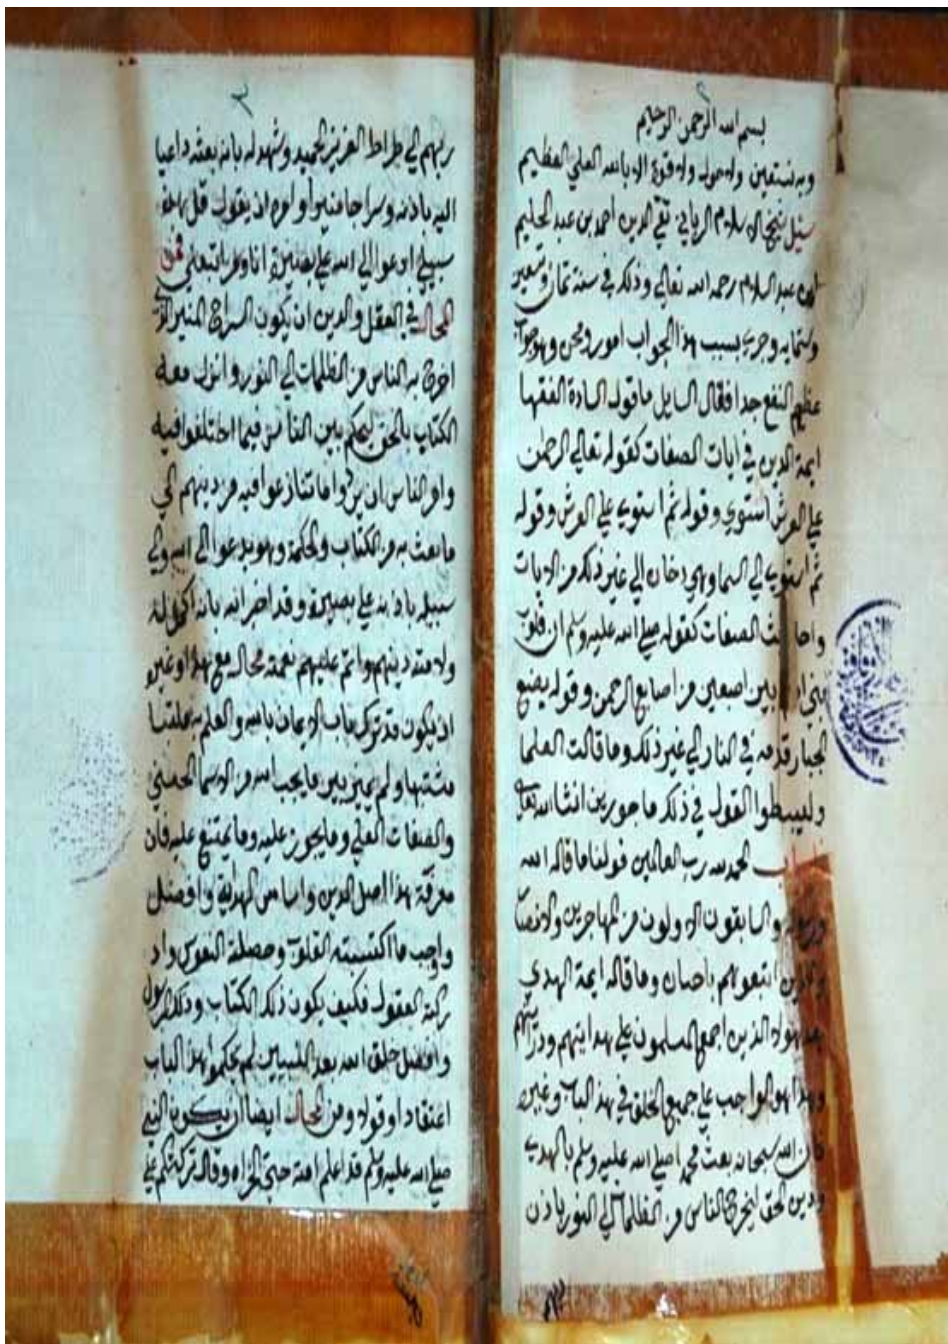 بسم الله الرحمن الرحيم
وبه نستعين ولا حول ولا قوة الا بالله العلي العظيم
سئل شيخ الاسلام الرباني تقي الدين احمد بن عبد الحليم
ابن عبد السلام رحمه الله تعالي وذلك في سنة ثمان وتسعين
وستمايه وجري بسبب هذا الجواب امور ومحن وهو جواب
عظيم النفع جدا فقال السايل ما قول السادة الفقها
ايمة الدين في ايات الصفات كقوله تعالي الرحمن
علي العرش استوي وقوله ثم استوي علي العرش وقوله
ثم استوي الي السما وهي دخان الي غير ذلك من الايات
واحاديث الصفات كقوله صلي الله عليه وسلم ان قلوب
بني ادم بين اصبعين من اصابع الرحمن وقوله يضع
الجبار قدمه في النار الي غير ذلك وما قالت العلما
وليبسطوا القول في ذلك ماجورين انشا الله تعالي
الحمد لله رب العالمين قولنا ما قاله الله
ورسوله والسابقون الاولون من المهاجرين والانصار
والذين اتبعوهم باحسان وما قاله ايمة الهدي
بعد هولا الذين اجمع المسلمون علي هدايتهم ودرايتهم
وهذا هو الواجب علي جميع الخلق في هذا الباب وغيره
فان الله سبحانه بعث محمدا صلي الله عليه وسلم بالهدي
ودين الحق ليخرج الناس من الظلمات الي النور باذن
٢
ربهم الي صراط العزيز الحميد وشهد له بانه بعثه داعيا
اليه باذنه وسراجا منيرا وامره ان يقول قل هذه
سبيلي ادعوا الي الله علي بصيرة انا ومن اتبعني فمن
المحال في العقل والدين ان يكون السراج المنير الذي
اخرج به الناس من الظلمات الي النور وانزل معه
الكتاب بالحق ليحكم بين الناس فيما اختلفوا فيه
وامر الناس ان يردوا ما تنازعوا فيه من دينهم الي
ما بعث به من الكتاب والحكمة وهو يدعوا الي الله والي
سبيله باذنه علي بصيرة وقد اخبر الله بانه اكمل له
ولامته دينهم واتم عليهم نعمته محال مع هذا وغيره
ان يكون قد ترك باب الايمان بالله والعلم به ملتبسا
مشتبها ولم يميز بين ما يجب لله من الاسما الحسني
والصفات العلي وما يجوز عليه وما يمتنع عليه فان
معرفة هذا اصل الدين واساس الهداية وافضل
واوجب ما اكتسبته القلوب وحصلته النفوس واد
ركته العقول فكيف يكون ذلك الكتاب وذلك الرسول
وافضل خلق الله بعد النبيين لم يحكموا هذا الباب
اعتقادا وقولا ومن المحال ايضا ان يكون النبي
صلي الله عليه وسلم قد اعلم امته حتي الخراه وقال تركتكم علي